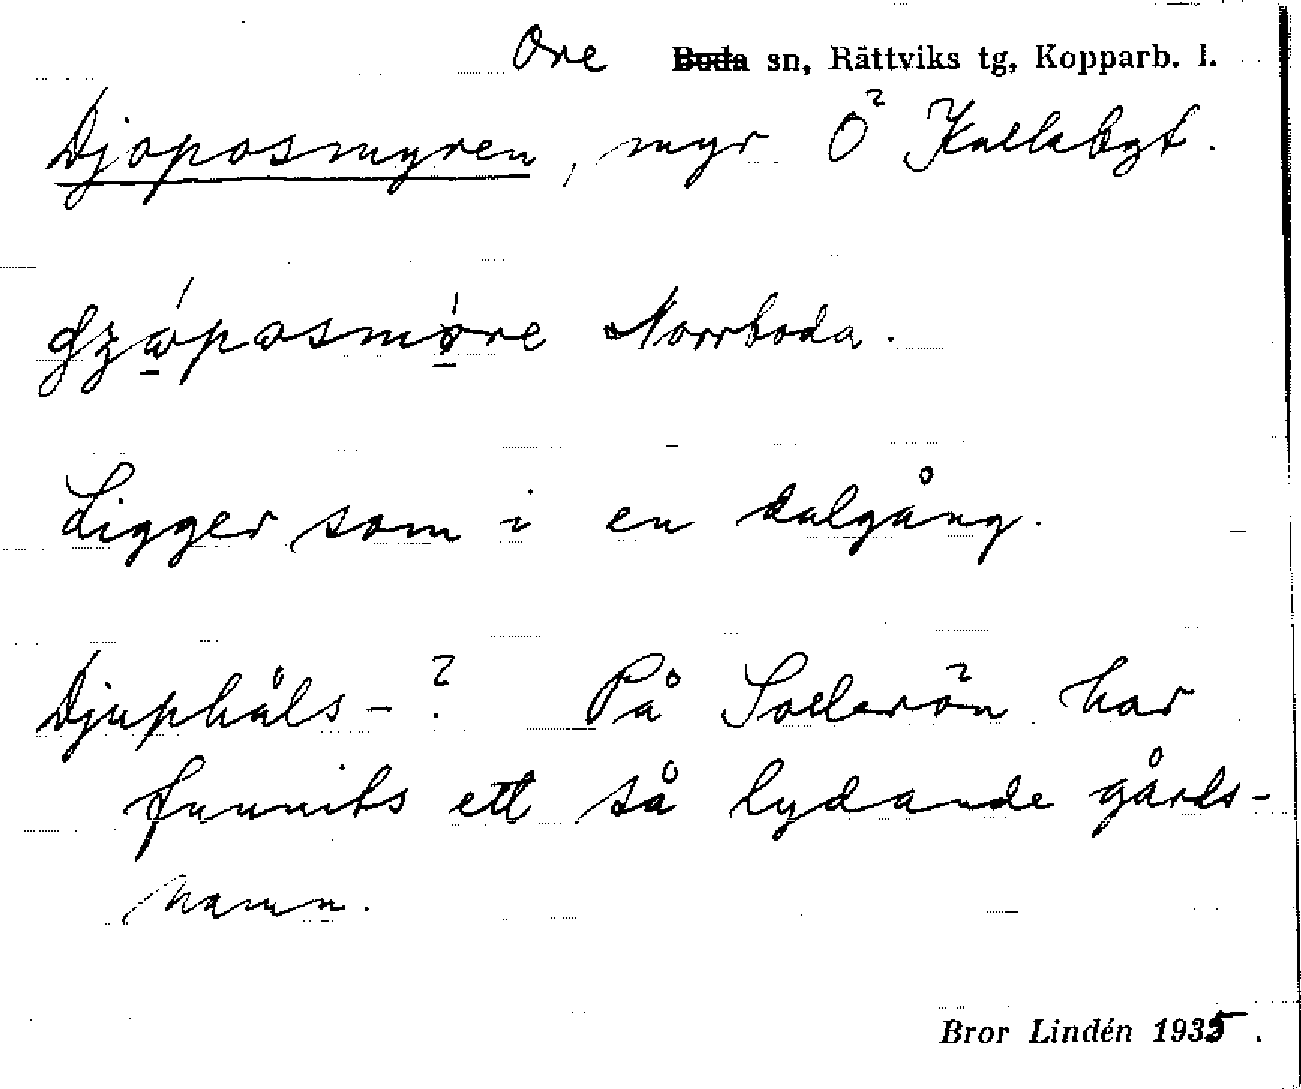 Ore Boda sn, Rättviks tg, Kopparb. l.
Djoposmyren, myr Ö Kallabgt.
Norrboda.
Ligger som i en dalgång.
Djuphåls-? På Sollerön har
funnits ett så lydande gårds-
namn.
Bror Lindén 1935.